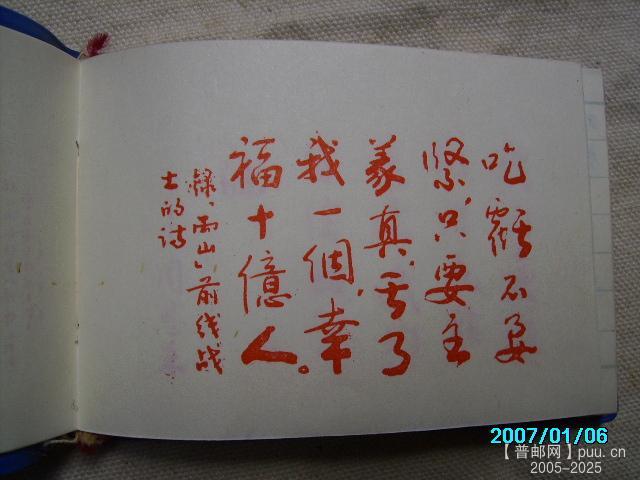 吃虧不要
緊,只要主
義真,亏了
我一個,幸
福十億人。
録《兩山》前线战
士的诗
2007/01/06
【普邮网】puu.cn
2005-2025